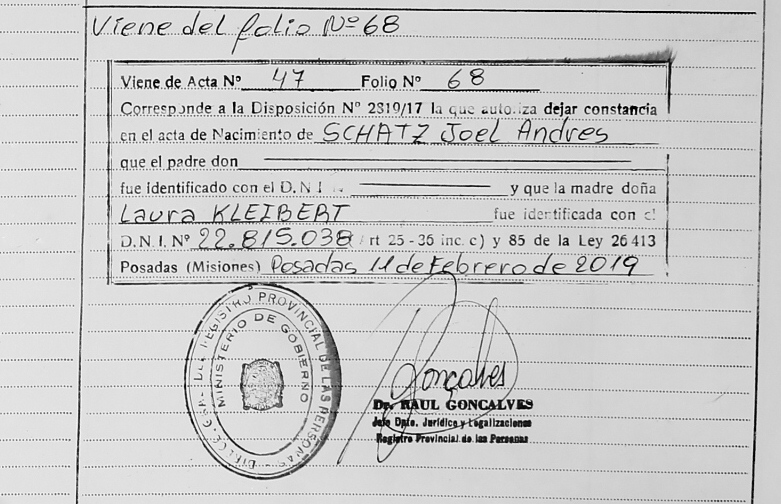 Viene del folio Nº 68
Viene de Acta Nº 47 Folio Nº 68
Corresponde a la Disposición Nº 2310/17 la que autoriza dejar constancia
en el acta de Nacimiento de SCHATZ Joel Andres
que el padre don
fue identificado con el D.N.I. y que la madre doña
Laura KLEIBERT fue identificada con el
D.N.I. Nº 22.815.038 rt 25 - 36 inc. c) y 85 de la Ley 26 413
Posadas (Misiones) Posadas 11 de Febrero de 2019
REGISTRO PROVINCIAL DE LAS PERSONAS
MINISTERIO DE GOBIERNO
Gonçalves
Dr. RAUL GONCALVES
Jefe Dpto. Jurídica y Legalizaciones
Registro Provincial de las Personas